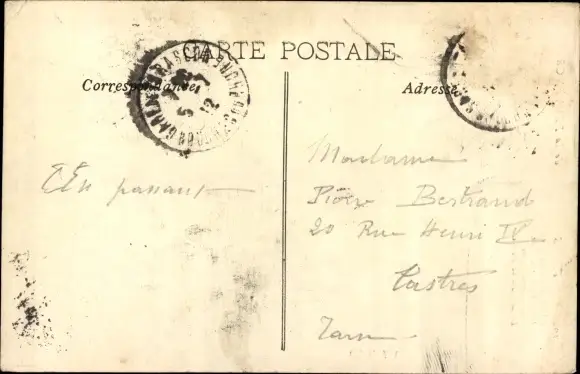 CARTE POSTALE
Correspondance
Adresse
En passant
Madame
Bertrand
20 Rue Henri IV
Castres
Tarn